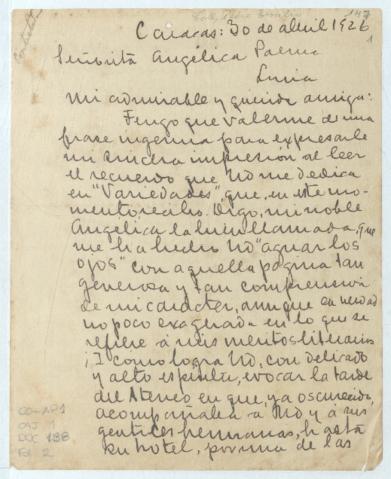 147
1
Caracas: 30 de abril 1926
Señorita Angélica Palma
Lima
Mi admirable y querida amiga:
Tengo que valerme de una
frase ingenua para expresarle
mi sincera impresión al leer
el recuerdo que Ud me dedica
en "Variedades", que, en este mo-
mento recibo. Digo, mi noble
Angélica la bien llamada, que
me ha hecho Ud "aguar los
ojos" con aquella página tan
generosa y tan comprensiva
de mi carácter, aunque en verdad
no poco exagerada en lo que se
refiere á mis méritos literarios
¡I como logra Ud, con delicado
y alto espíritu, evocar la tarde
del Ateneo en que, ya oscurecido,
acompañaba a Ud y á sus
gentiles hermanas, hasta
su hotel, por una de las
CO-AP1
CAJ 1
DOC 198
Fol 2